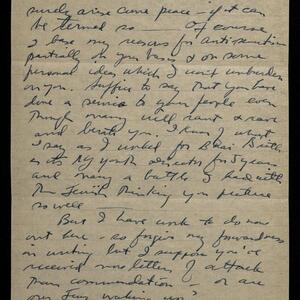 surely arise come peace - if it can
be termed so — Of course
I base my reasons for Anti-semitism
partially on your bases & on some
personal ideas which I won't unburden
on you. Suffice to say that you have
done a service to your people even
though many will rant & rave
and berate you. I know of what
I say as I worked for B'nai Brith
as its NY youth director for 5 years
and many a battle I had with
the Jewish thinking you picture
so well —
But I have work to do now
out here - so forgive my forwardness
in writing but I suppose you've
received more letters of attack
than commendation - or are
our Jews waking up?